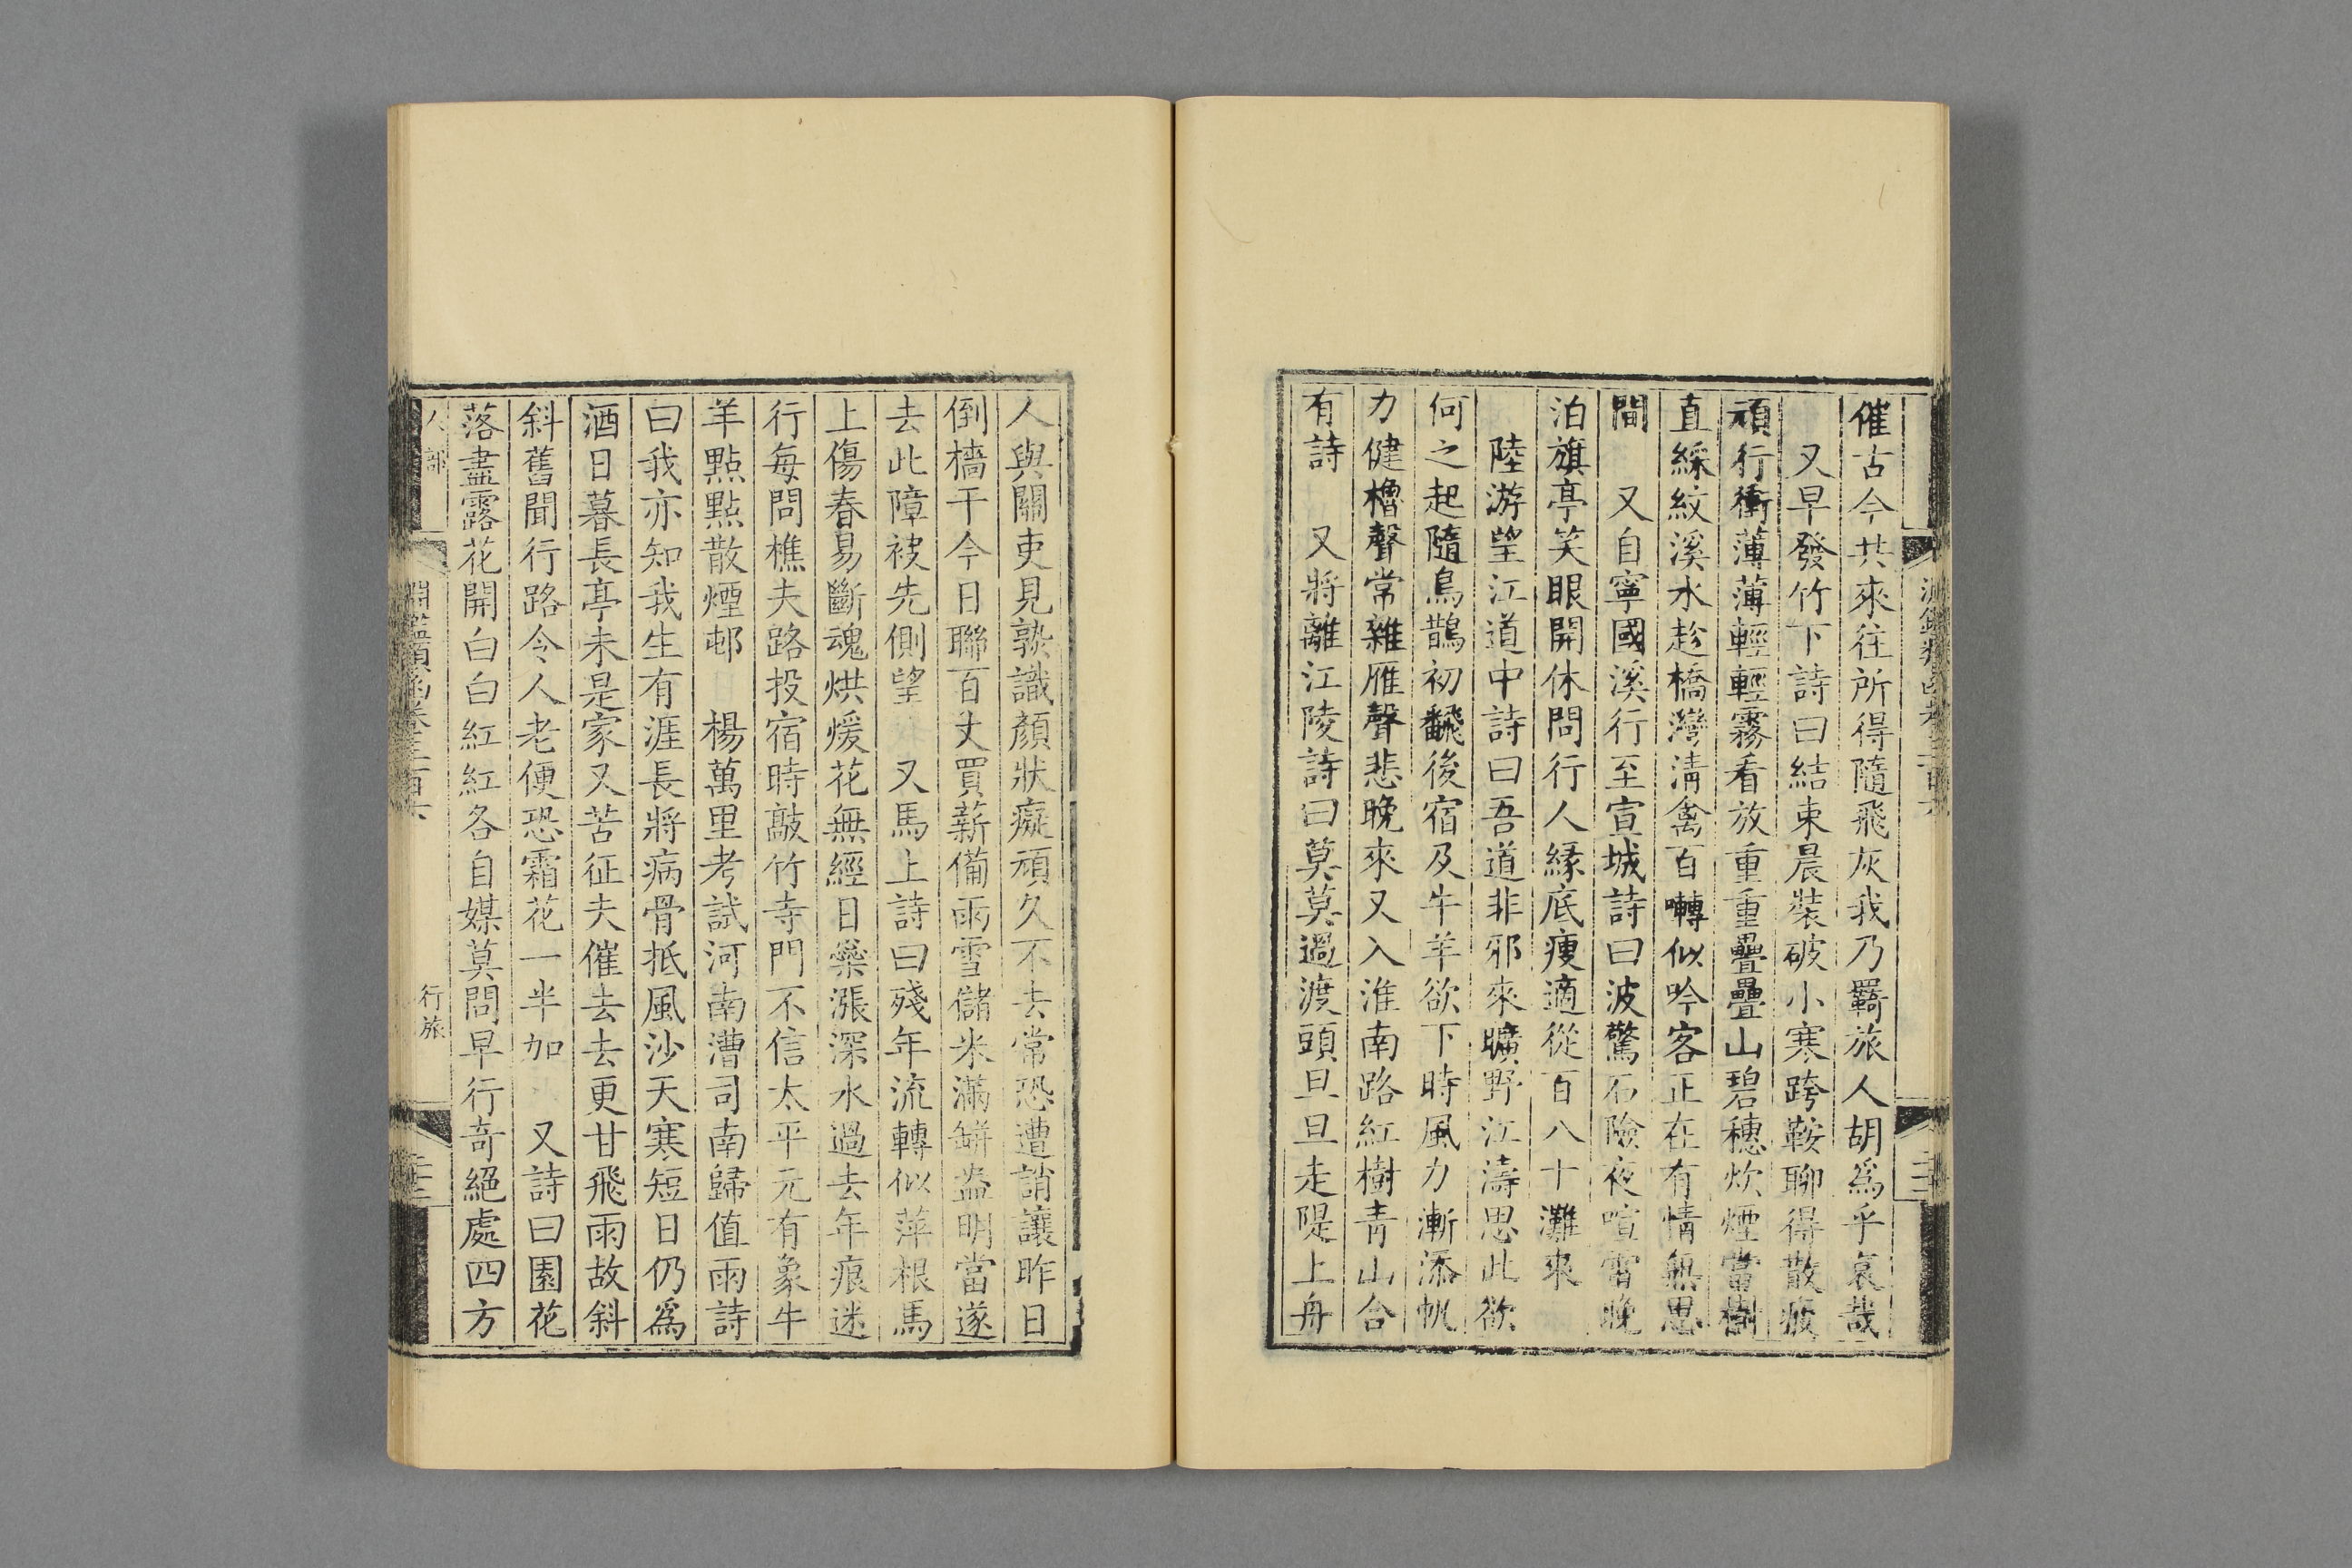 催古今共來往所得隨飛灰我乃羇旅人胡為乎哀哉
又早發竹下詩曰結束晨裝破小寒跨鞍聊得散疲
頑行衝薄薄輕輕霧看放重重疊疊山碧穗炊煙當樹
直綵紋溪水趁橋灣清禽百囀似吟客正在有情無思
間　又自寧國溪行至宣城詩曰波驚石險夜喧雷曉
泊旗亭笑眼開休問行人緣底瘦適從百八十灘來
陸游望江道中詩曰吾道非邪來曠野江濤思此欲
何之起隨鳥鵲初飜後宿及牛羊欲下時風力漸添帆
力健櫓聲常雜雁聲悲晚來又入淮南路紅樹青山合
有詩　又將離江陵詩曰莫莫過渡頭旦旦走隄上舟
人與關吏見孰識顏狀癡頑久不去常恐遭誚讓昨日
倒檣干今日聯百丈買薪備雨雪儲米滿缾盎明當遂
去此障袂先側望　又馬上詩曰殘年流轉似萍根馬
上傷春易斷魂烘煖花無經日蘂漲深水過去年痕迷
行每問樵夫路投宿時敲竹寺門不信太平元有象牛
羊點點散煙邨　楊萬里考試河南漕司南歸值雨詩
曰我亦知我生有涯長將病骨抵風沙天寒短日仍為
酒日暮長亭未是家又苦征夫催去去更甘飛雨故斜
斜舊聞行路令人老便恐霜花一半加　又詩曰園花
落盡露花開白白紅紅各自媒莫問早行奇絕處四方
人部
淵鑑類函卷三百六
行旅